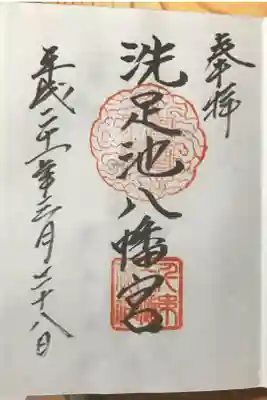 奉拝
洗足池八幡宮
平成二十一年三月二十八日